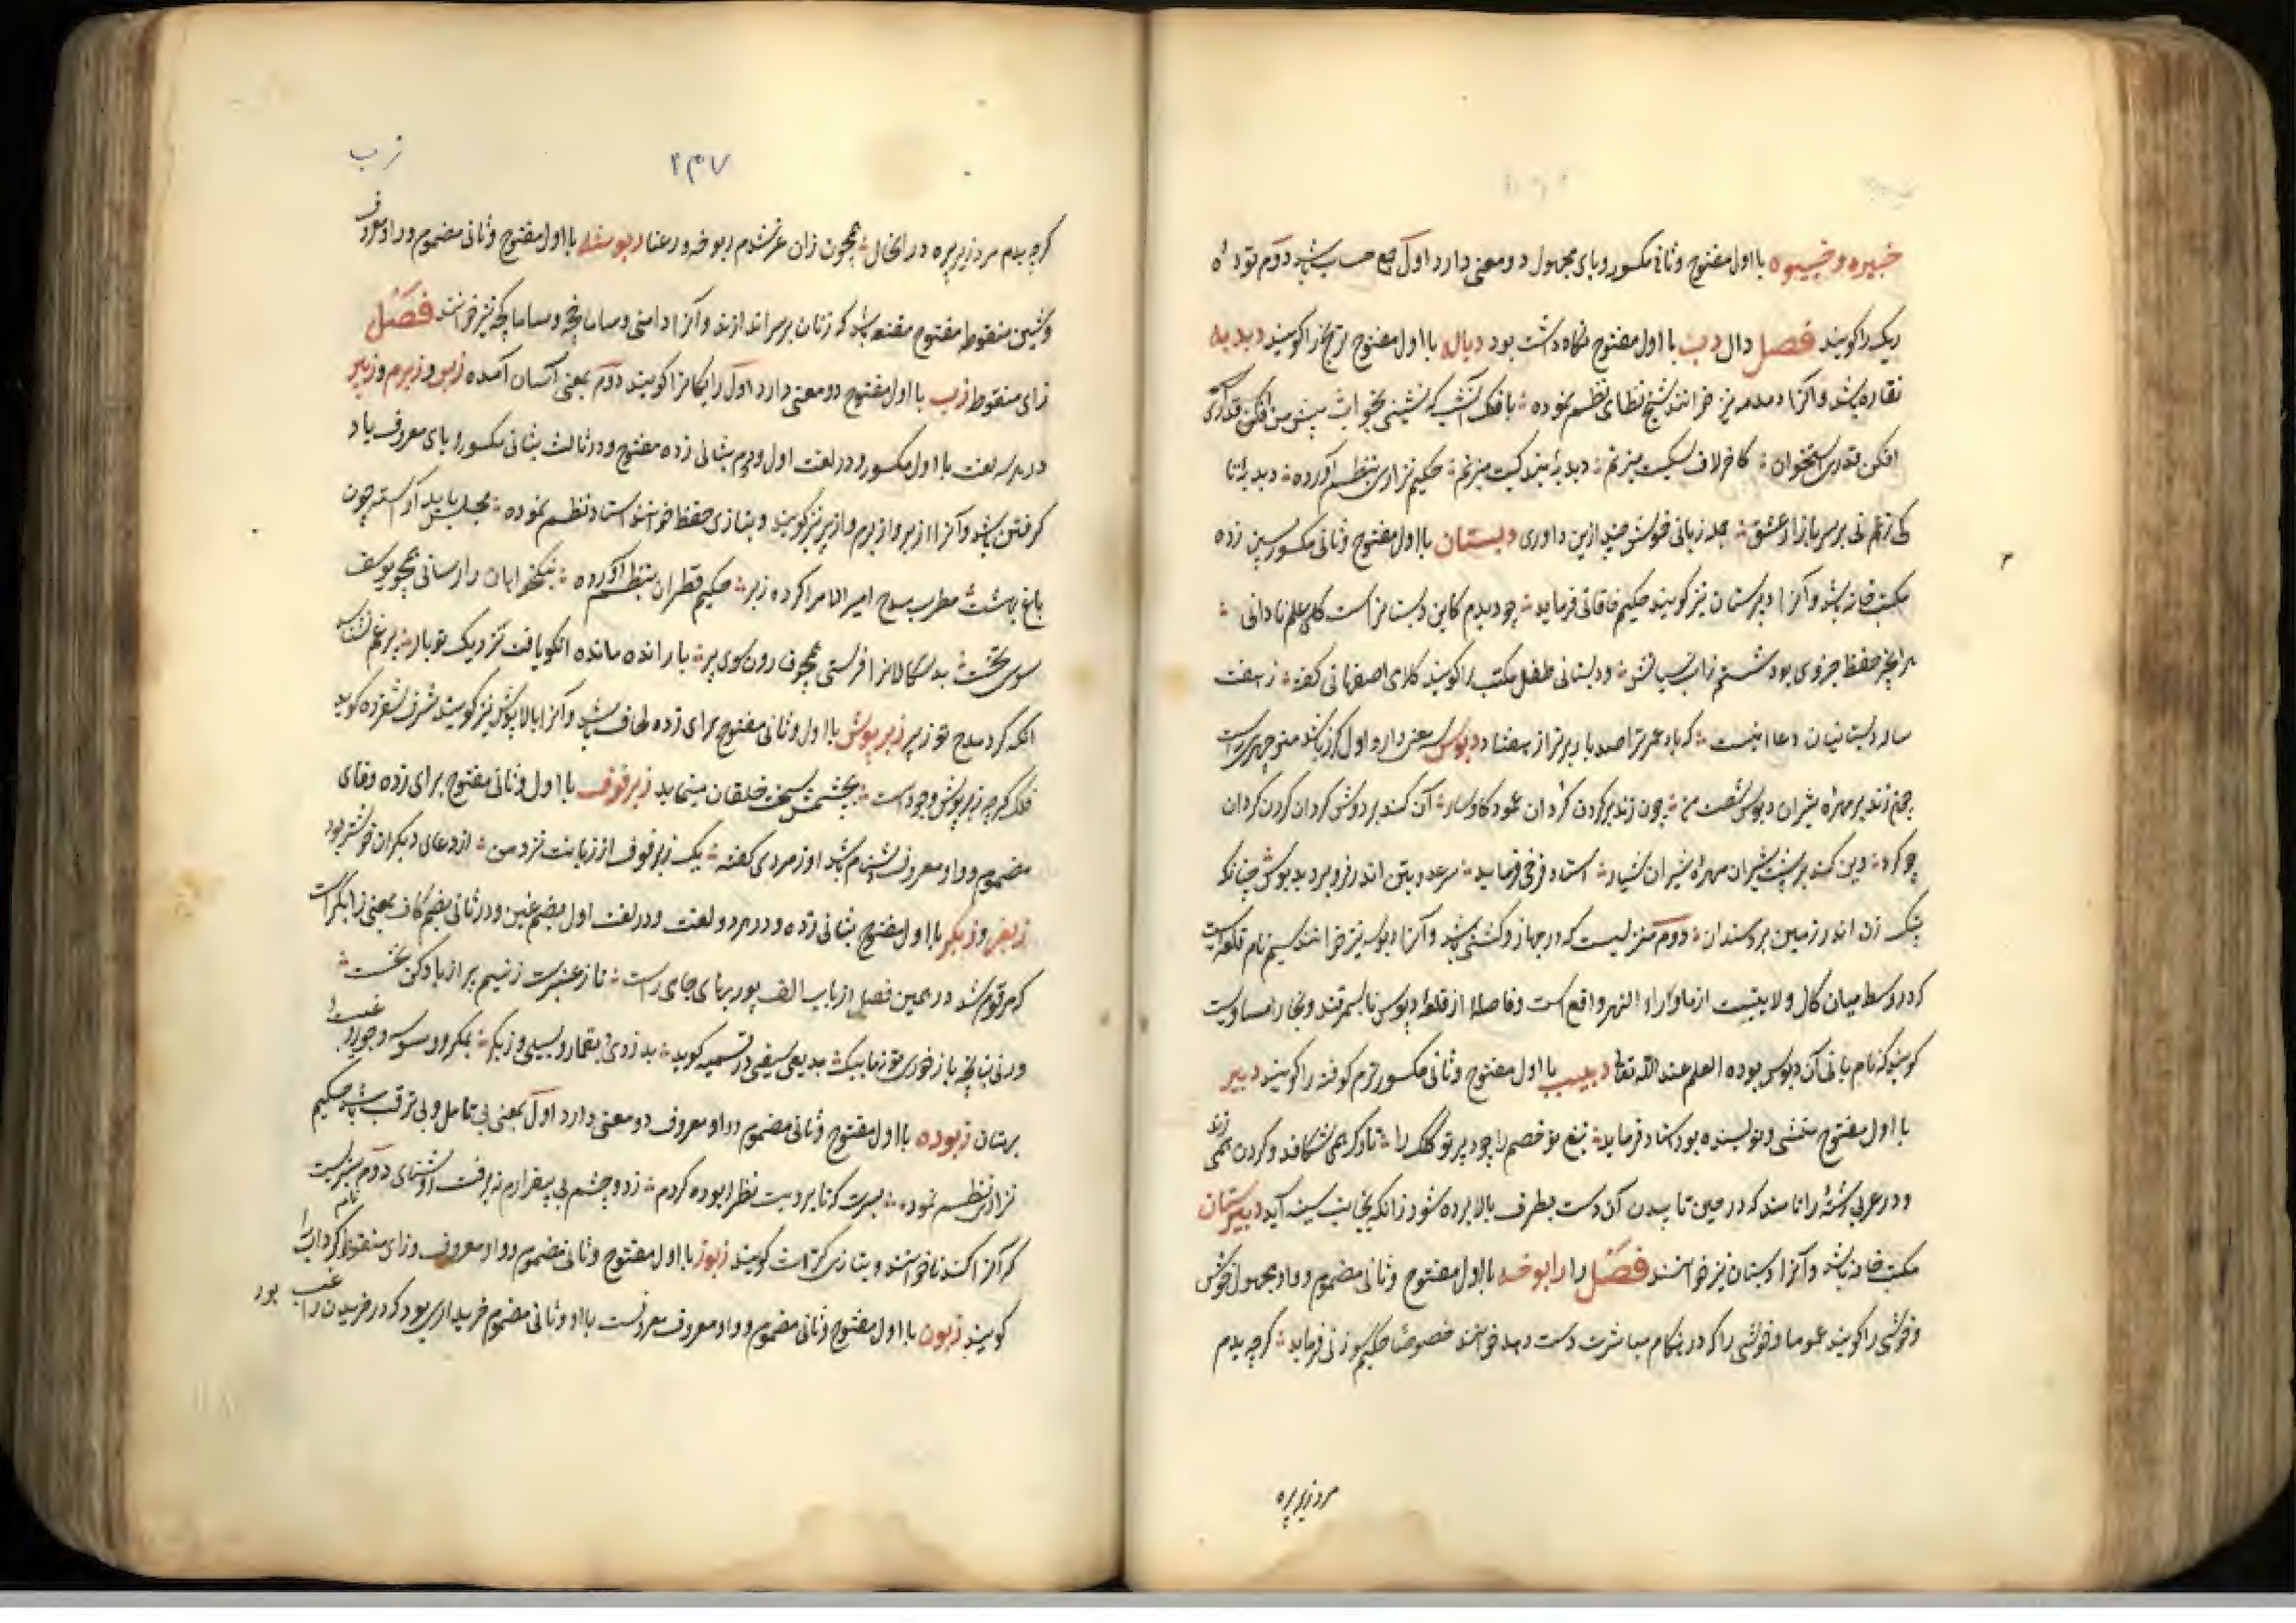 خبیره و خبیوه با اول مفتوح و ثانی مکسور و یای مجهول دو معنی دارد اول جمع حساب باشد دوم توده
ریک را کویند فصل دال دب با اول مفتوح نکاه داشت بود دباله با اول مفتوح ترنج را کویند دبدبه
نقاره باشد و آنرا دمدمه نیز خوانند شیخ نظامی نظم نموده با فلک آنشب که نشینی بخوان پیش من افکن قدری
افکن قدری استخوان کاخر لاف سکیت میزنم دبدبه بندکیت میزنم حکیم نزاری بنظم آورده دبدبه تا
کی زنم نی بر سر بازار عشق چند زبانی خوش چند ازین داوری دبستان با اول مفتوح و ثانی مکسور بسین زده
مکتب خانه باشد و آنرا دبیرستان نیز کویند حکیم خاقانی فرماید چو دیدم کاین دبستانراست کلی علم نادانی
هر آنچز حفظ جزوی بود شستم زاب نسیانش و دبستانی طفل مکتب را کویند کلامی اصفهانی کفته ز هفت
ساله دبستانیان دعا اینست که باد عمر تو اصد بار برتر از هفتاد دبوس سه معنی دارد اول کرز باشد منوچهری راست
چون زند بر مهره شیران دبوس شصت من چون زند بر کردن کردان عمود کاوسار آن کند بر دوش کردان کردن کردان
چو کرد وین کند بر پشت شیران مهره شیران شیار استاد فرخی فرماید سر عدو بتن اندر فرو برد بدبوس چنانکه
پتک زن اندر زمین برد سندان دوم منزلیست که در جهاز و کشتی باشد و آنرا دبوسه نیز خوانند سیم نام قلعه ایست
که در وسط میان کال ولایتیست از ماوراء النهر واقع است و فاصله از قلعه دبوس تا بسمرقند و بخارا مساویست
کویند که نام بانی آن دبوس بوده العلم عند الله تعالی دبیب با اول مفتوح و ثانی مکسور ترم کوفته را کویند دبیر
با اول مفتوح منشی و نویسنده بود استاد فرماید تیغ تو خصم را چو دبیر تو کلک را تارک همی شکافد و کردن همی زند
و در عربی رشته را نامند که در حین تابیدن آن دست بطرف بالا برده شود زانکه بجانب سینه آید دبیرستان
مکتب خانه باشد و آنرا دبستان نیز خوانند فصل را رابوخه با اول مفتوح و ثانی مضموم و واو مجهول خوش
و خوشی را کویند عموما و خوشی را که در هنکام مباشرت دست دهد خوانند خصوصا حکیم سوزنی فرماید کرچه بدم
مرد زیر پره
زب
۲۴۷
کرچه بدم مرد زیر پره در انحال همچون زنان عرشدم ربوخه و رعنا ربوسه با اول مفتوح و ثانی مضموم و واو معروف
و شین منقوطه مفتوح مقنعه باشد که زنان بر سر اندازند و آنرا دامنی و ساماخچه و ساماکچه نیز خوانند فصل
زای منقوطه زب با اول مفتوح دو معنی دارد اول رایکانرا کویند دوم بمعنی آسان آمده زبر و زبرم و زبیر
در هر سه لغت با اول مکسور و در لغت اول و دوم بثانی زده مفتوح و در ثالث بثانی مکسور و یای معروف یاد
کرفتن باشد و آنرا ازبر و ازبرم و ازبیر نیز کویند و بتازی حفظ خوانند استاد نظم نموده مجلس باید آراسته چون
باغ بهشت مطرب مدح امیر الامرا کرده زبر حکیم قطران بنظم آورده نیکخواهان را رسانی همچو یوسف
سوی تخت بدسکالانرا فرستی همچو قارون سوی پر بار انده مانده انکو یافت نزدیک تو بار
انکه کرد مدح تو زبیر زبرپوش با اول و ثانی مفتوح برای زده لحاف باشد و آنرا بالاپوش نیز کویند شرف شفروه کوید
فلک کرچه زبرپوش وجود است بچشمش سخت خلقان مینماید زبرفوف با اول و ثانی مفتوح برای زده و فای
مضموم و واو معروف دشنام باشد اوزمردی کفته یک زبرفوف از زبانت نزد من از دعای دیکران خوشتر بود
زبغر و زبکر با اول مفتوح بثانی زده و در هر دو لغت و در لغت اول بضم غین و در ثانی بضم کاف بمعنی زابکر است
که مرقوم شد در همین فصل از باب الف پور بهای جامی راست
بهتان زبوده با اول مفتوح و ثانی مضموم و واو معروف دو معنی دارد اول بمعنی بی تامل و بی ترقب باشد حکیم
نزاری نظم نموده
که آنرا کندنا خوانند و بتازی کراث کویند زبوز با اول مفتوح و ثانی مضموم و واو معروف و زای منقوطه
کویند زبون با اول مفتوح و ثانی مضموم و واو معروف معروفست با او و ثانی مضموم خریداری بود که در خریدن راغب بود